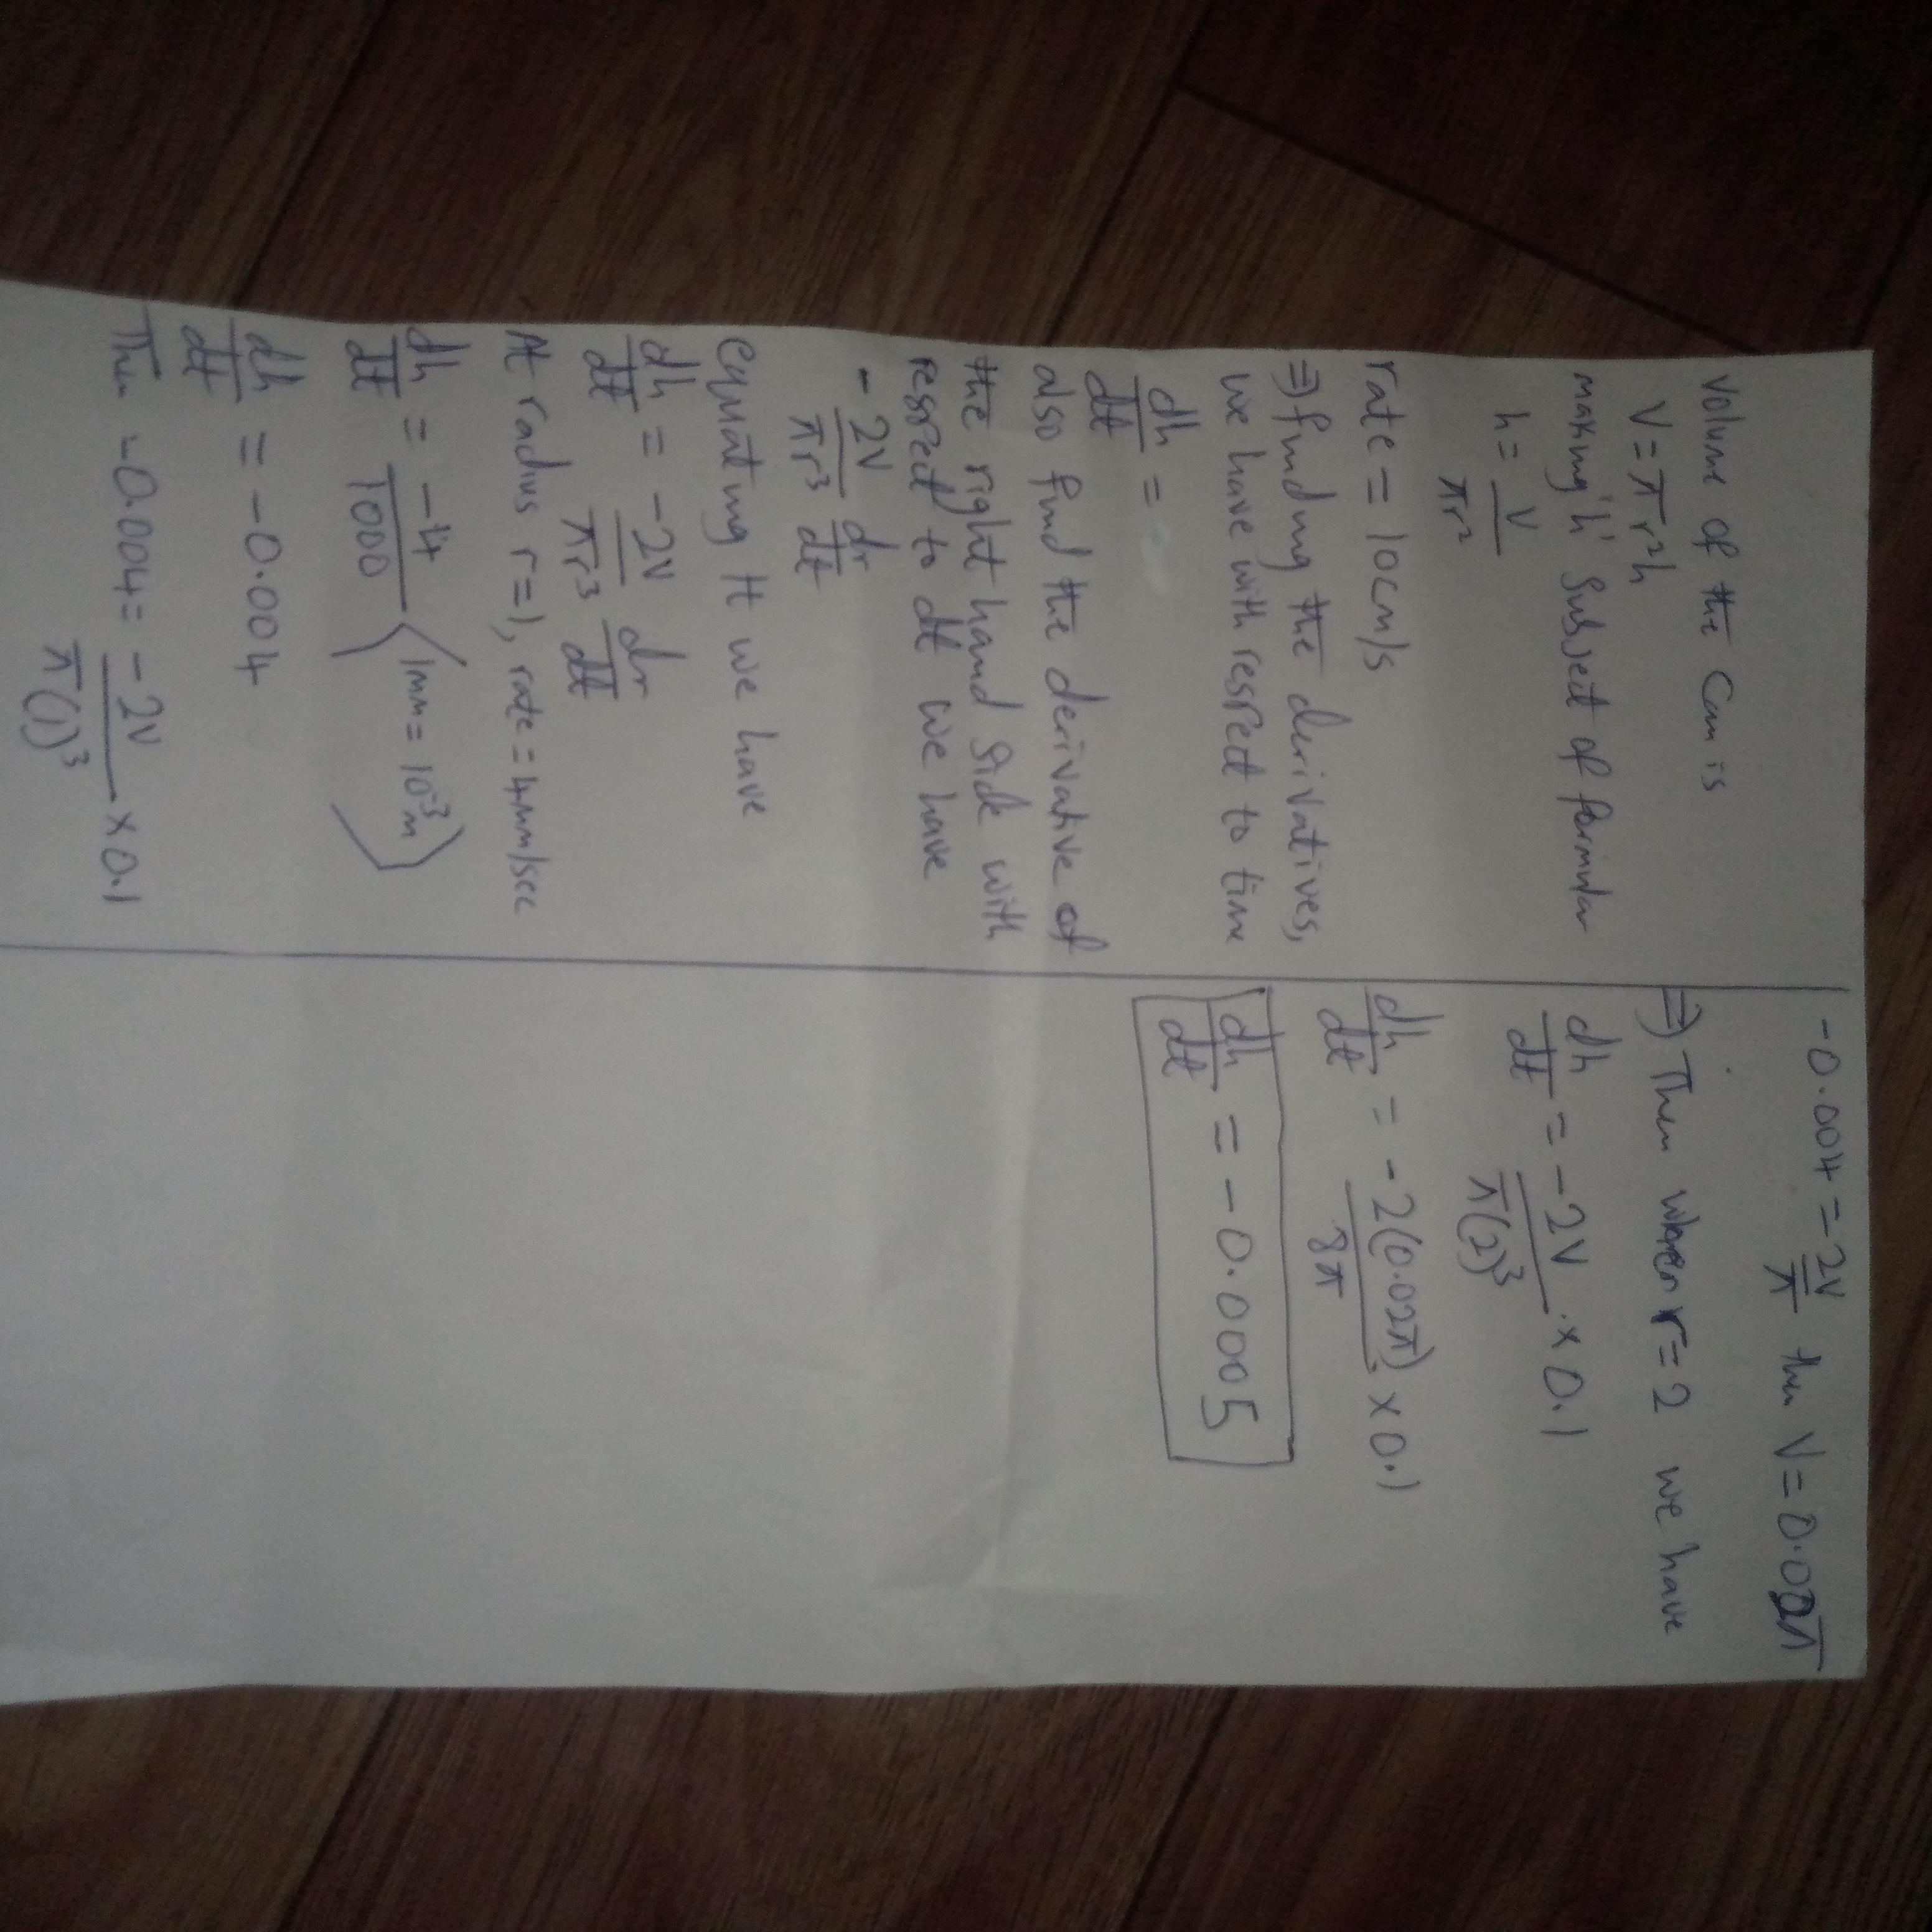 Volume of the Can is
V = πr²h
making 'h' Subject of formular
h = V/πr²
rate = 10cm/s
⇒ finding the derivatives,
we have with respect to time
dh/dt =
also find the derivative of
the right hand Side with
respect to dt we have
- 2V/πr³ dr/dt
equating it we have
dh/dt = -2V/πr³ dr/dt
At radius r=1, rate = 4mm/sec
dh/dt = -4/1000 (1mm = 10⁻³m)
dh/dt = -0.004
Then -0.004 = -2V/π(1)³ × 0.1
-0.004 = 2V/π then V = 0.02π
⇒ Then when r=2 we have
dh/dt = -2V/π(2)³ × 0.1
dh/dt = -2(0.02π)/8π × 0.1
dh/dt = -0.0005